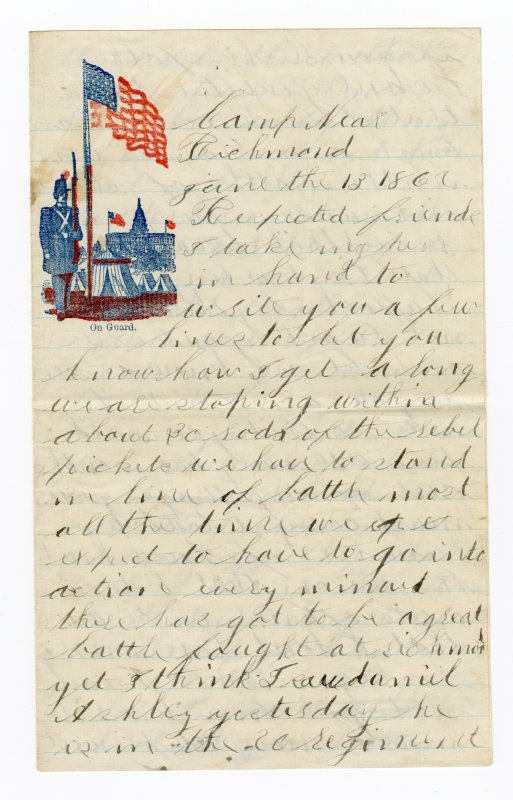 Camp Near
Richmond
June the 13 1862
Respected friends
I take my pen
in hand to
write you a few
lines to let you
On Guard.
know how I get a long
we are stoping within
about 30 rods of the rebel
pickets we have to stand
in line of battle most
all the time we
expect to have to go into
action every minuet
there has got to be a great
battle faught at richmon
yet I think I saw daniel
Ashley yesterday he
is in the 20 regiment